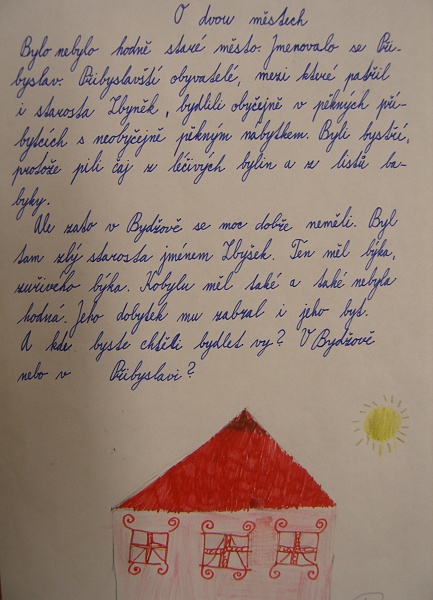 O dvou městech
Bylo nebylo hodně staré město. Jmenovalo se Při-
byslav. Přibyslavští obyvatelé, mezi které patřil
i starosta Zbyněk, bydlili obyčejně v pěkných pří-
bytcích s neobyčejně pěkným nábytkem. Byli bystří,
protože pili čaj z léčivých bylin a z listů ba-
byky.
Ale zato v Bydžově se moc dobře neměli. Byl
tam zlý starosta jménem Zbyšek. Ten měl býka,
zuřivého býka. Kobylu měl také a také nebyla
hodná. Jeho dobytek mu zabral i jeho byt.
A kde byste chtěli bydlet vy? V Bydžově
nebo v Přibyslavi?